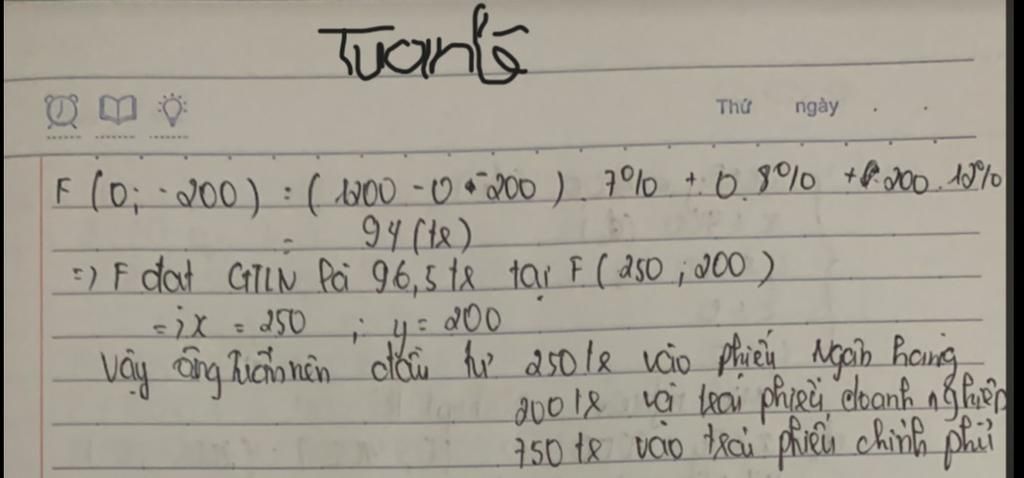 Tuanlê
Thứ ngày . .
F (0; 200) = (1200 - 0 - 200) . 7% + 0. 8% + 200. 12%
= 94 (tỉ)
=> F đạt GTLN là 96,5 tỉ tại F (250 ; 200)
=> x = 250 ; y = 200
Vậy ông nên đầu tư 250 tỉ vào phiếu Ngân hàng
200 tỉ và trái phiếu doanh nghiệp
750 tỉ vào trái phiếu chính phủ